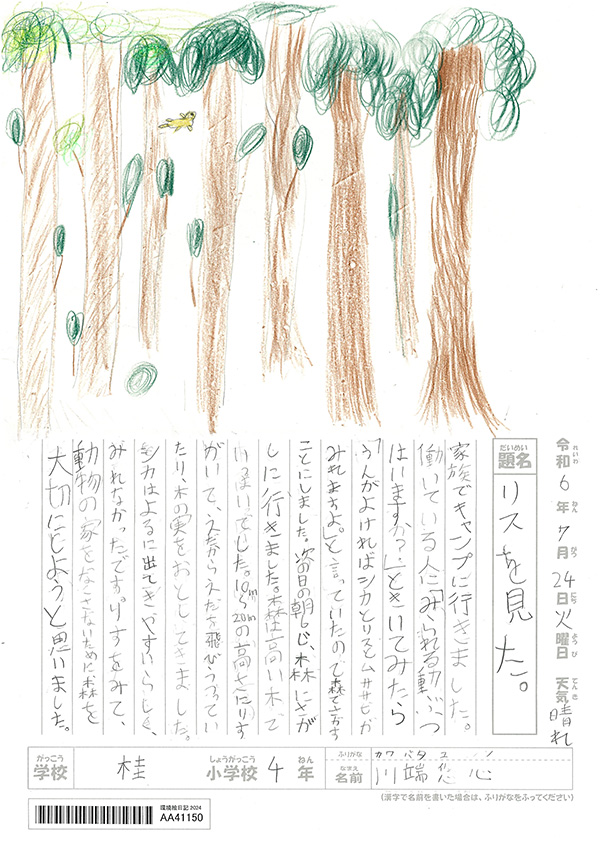 令和6年7月24日火曜日 天気 晴れ
題名 リスを見た。
家族でキャンプに行きました。
働いている人に「みられる動ぶつ
はいますか?」ときいてみたら
「うんがよければシカとリスとムササビが
みれますよ。」と言っていたので森でさがす
ことにしました。次の日の朝6じ、森にさが
しに行きました。森は高い木で
いっぱいでした。10m~20mの高さにリす
がいて、えだからえだを飛びうつってい
たり、木の実をおとしてきました。
シカはよるに出てきやすいらしく、
みれなかったです。りすをみて、
動物の家をなくさないために森を
大切にしようと思いました。
がっこう 学校 桂 しょうがっこう 小学校 4 ねん 年
ふりがな カワバタユノ
なまえ 名前 川端悠心
(漢字で名前を書いた場合は、ふりがなをふってください)
環境絵日記2024
AA41150